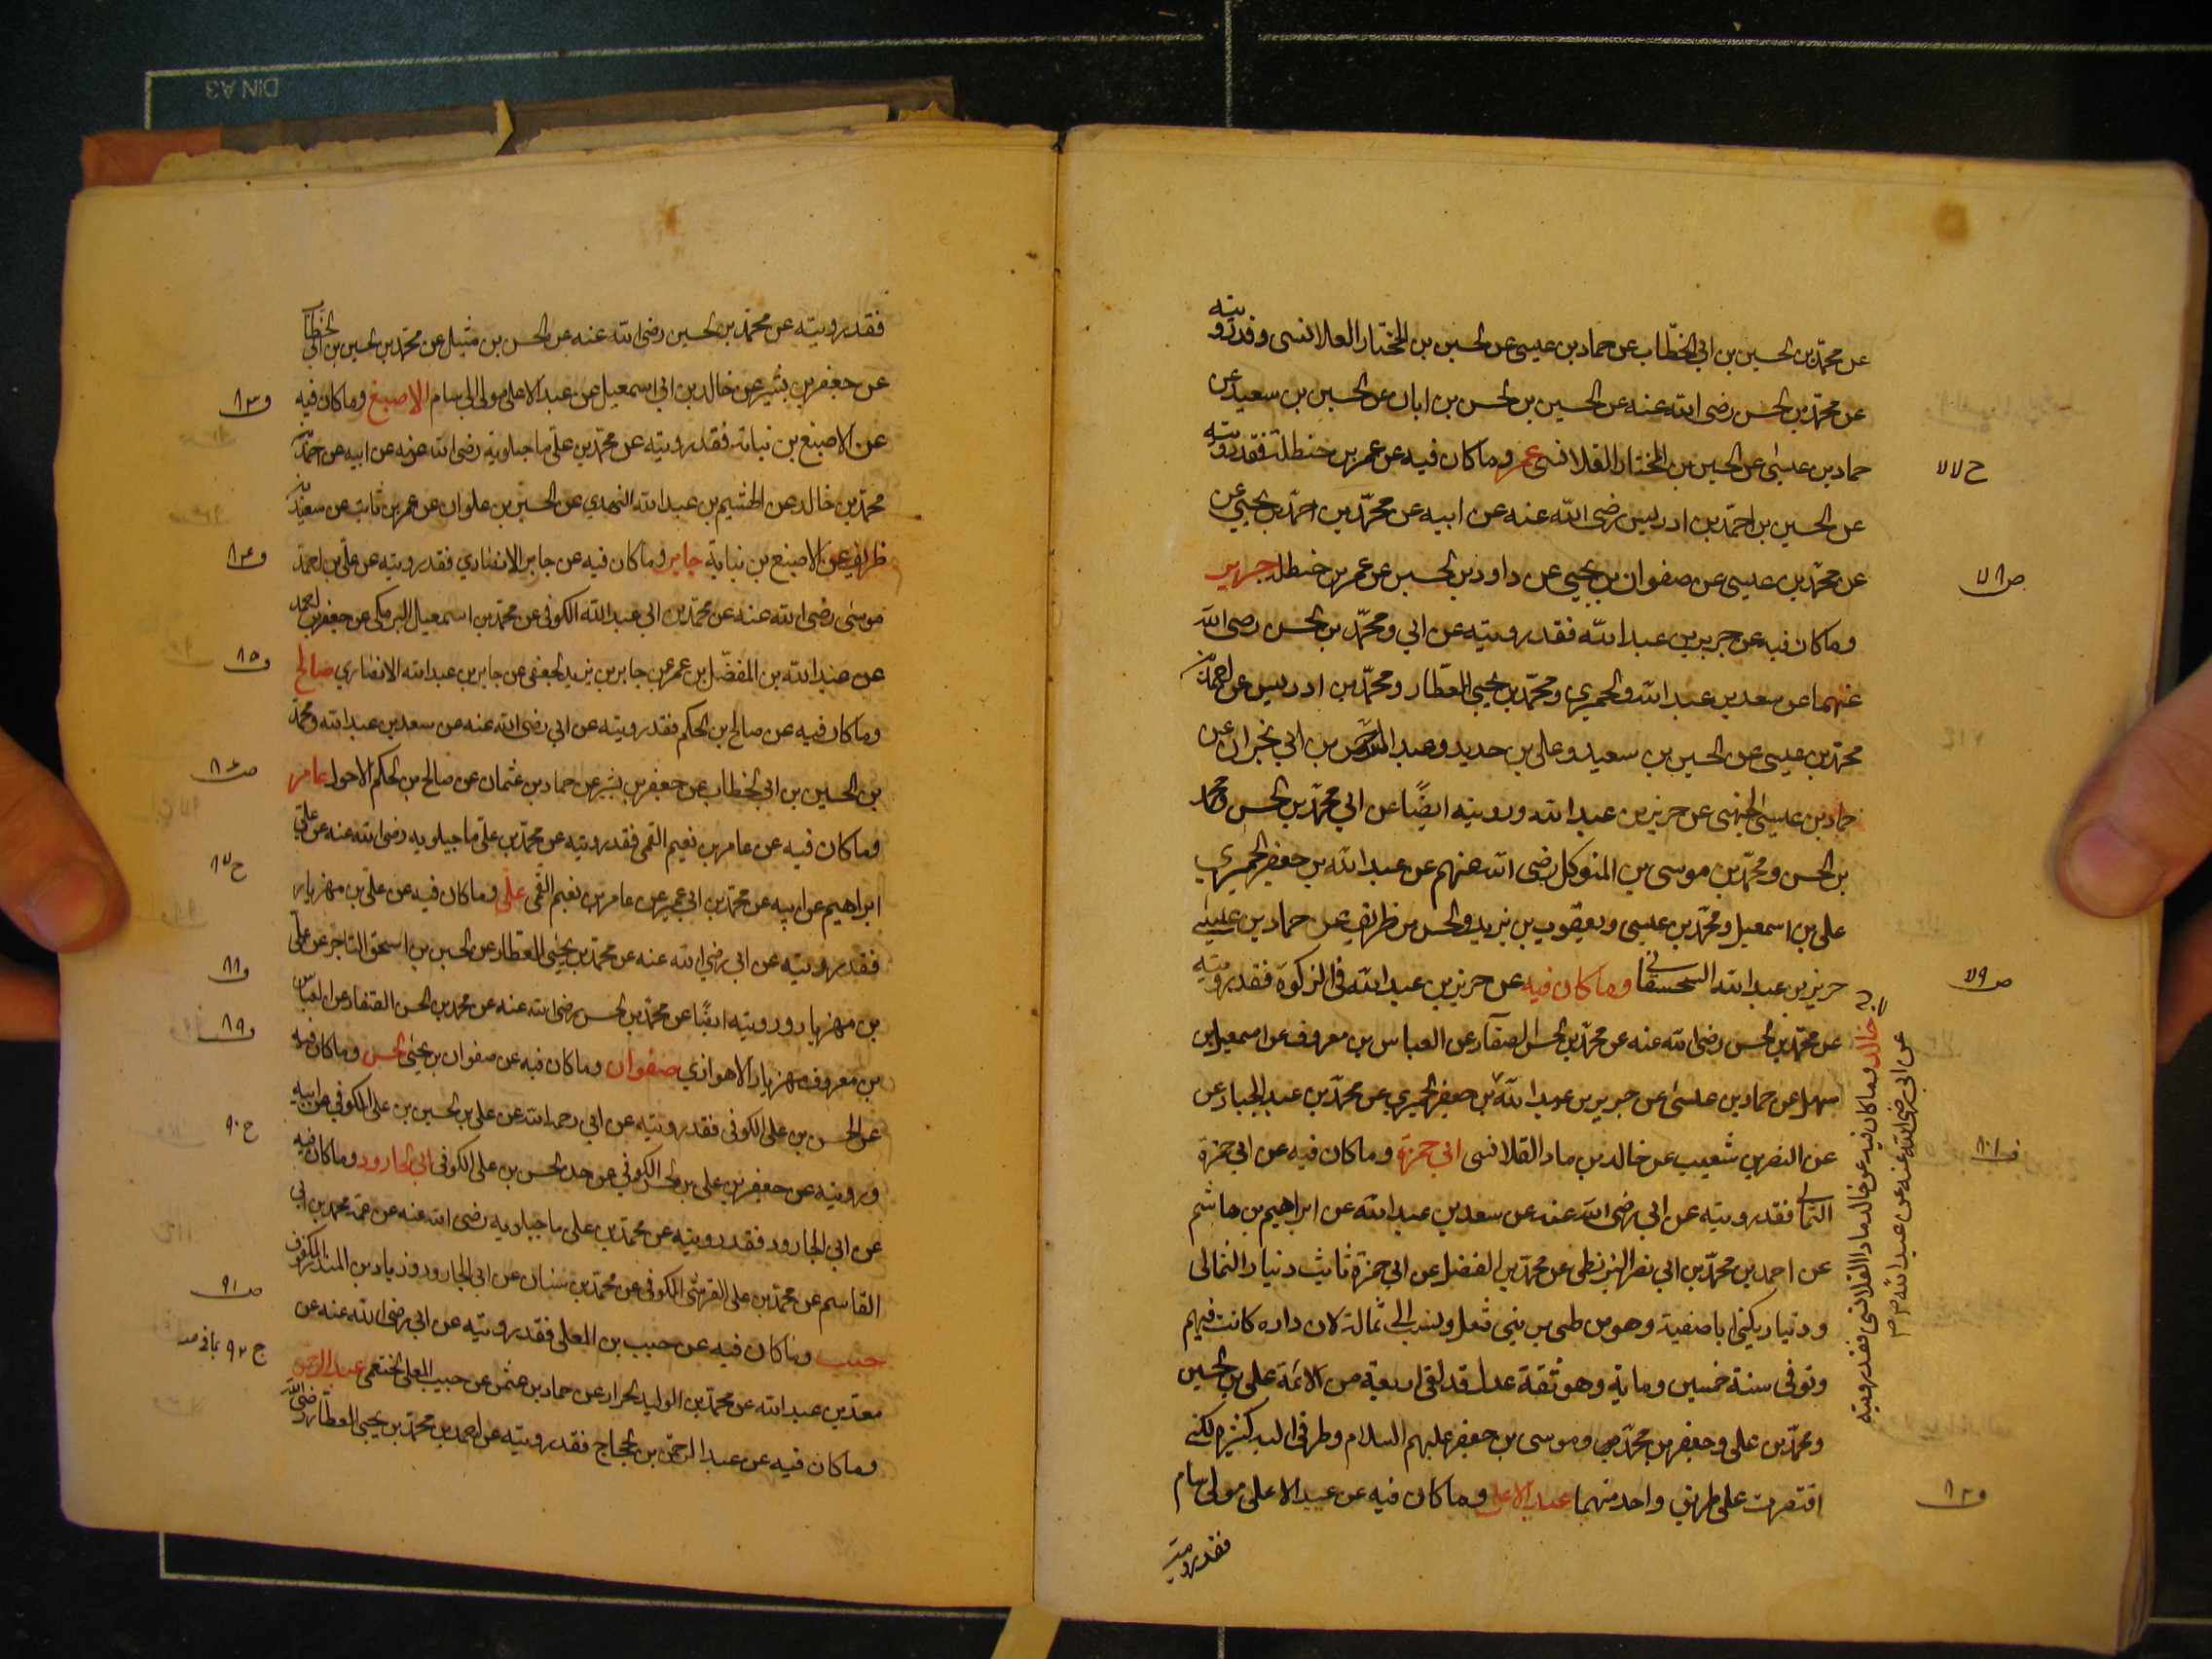 عن محمد بن الحسين بن ابي الخطاب عن حماد بن عيسى عن الحسين بن المختار العلانسى وقد رويته
عن محمد بن الحسن رضى الله عنه عن الحسين بن الحسن بن ابان عن الحسين بن سعيد عن
حماد بن عيسى عن الحسين بن المختار القلانسى عمر وما كان فيه عن عمر بن حنظلة فقد رويته
ح ٧٧
عن الحسين بن احمد بن ادريس رضى الله عنه عن ابيه عن محمد بن احمد بن يحيى عن
عن محمد بن عيسى عن صفوان بن يحيى عن داود بن الحسين عن عمر بن حنظلة جرير
ص ٧٨
وما كان فيه عن جرير بن عبد الله فقد رويته عن ابي ومحمد بن الحسن رضى الله
عنهما عن سعد بن عبد الله والحميري ومحمد بن يحيى العطار ومحمد بن ادريس عن احمد بن
محمد بن عيسى عن الحسين بن سعيد وعلى بن حديد وعبد الرحمن بن ابي نجران عن
حماد بن عيسى الجهنى عن حريز بن عبد الله ورويته ايضًا عن ابي محمد بن الحسن ومحمد
بن الحسن ومحمد بن موسى بن المتوكل رضى الله عنهم عن عبد الله بن جعفر الحميري
على بن اسمعيل ومحمد بن عيسى ويعقوب بن يزيد والحسن بن ظريف عن حماد بن عيسى
حريز بن عبد الله السحستانى وما كان فيه عن حريز بن عبد الله في الزكوة فقد رويته
ص ٧٩
عن محمد بن الحسن رضى الله عنه عن محمد بن الحسن الصفار عن العباس بن معروف عن اسمعيل بن
سهل عن حماد بن عيسى عن جرير بن عبد الله بن جعفر الحميري عن محمد بن عبد الجبار عن
خالد وما كان فيه عن خالد ماد القلانسى فقد رويته
عن ابي رضى الله عنه عن عبد الله
عن النضر بن شعيب عن خالد بن ماد القلانسى ابى حمزة وما كان فيه عن ابي حمزة
الثمالى فقد رويته عن ابي رضى الله عنه عن سعد بن عبد الله عن ابراهيم بن هاشم
عن احمد بن محمد بن ابي نصر البزنطى عن محمد بن الفضيل عن ابي حمزة ثابت دنيار الثمالى
ودنيار يكنى ابا صفية وهو من طى بن بنى ثعل ونسب الى ثمالة لان داره كانت فيهم
وتوفى سنة خمسين وماية وهو ثقة عدل قد لقى اربعة من الائمة على بن الحسين
ومحمد بن على وجعفر بن محمد وموسى بن جعفر عليهم السلام وطرقى اليه كثيرة لكنى
اقتصرت على طريق واحد منهما عبد الاعلى وما كان فيه عن عبد الاعلى مولى سام
فقد رويته
فقد رويته عن محمد بن الحسين رضى الله عنه عن الحسن بن متيل عن محمد بن الحسين بن ابي الخطاب
عن جعفر بن بشير عن خالد بن ابي اسمعيل عن عبد الاعلى مولى ال سام الاصبغ وما كان فيه
عن الاصبغ بن نباتة فقد رويته عن محمد بن على ماجيلويه رضى الله عنه عن ابيه عن احمد بن
محمد بن خالد عن الهشيم بن عبد الله النهدي عن الحسين بن علوان عن عمر بن ثابت عن سعد بن
ظريف عن الاصبغ بن نباتة جابر وما كان فيه عن جابر الانصاري فقد رويته عن على بن احمد
موسى رضى الله عنه عن محمد بن ابي عبد الله الكوفى عن محمد بن اسمعيل البرمكى عن جعفر بن احمد
عن عبد الله بن المفضل بن عمر عن جابر بن يزيد الجعفى عن جابر بن عبد الله الانصاري صالح
و ٨٥
وما كان فيه عن صالح بن الحكم فقد رويته عن ابي رضى الله عنه عن سعد بن عبد الله ومحمد
بن الحسين بن ابي الخطاب عن جعفر بن بشير عن حماد بن عثمان عن صالح بن الحكم الاحول عامر
وما كان فيه عن عامر بن نعيم القمى فقد رويته عن محمد بن على ماجيلويه رضى الله عنه عن على
ابراهيم عن ابيه عن محمد بن ابي عمير عن عامر بن نعيم القمى على وما كان فيه عن على بن مهزيار
ح ٨٧
فقد رويته عن ابي رضى الله عنه عن محمد بن يحيى العطار عن الحسين بن اسحق التاجر عن على
بن مهزيار ورويته ايضًا عن محمد بن الحسن رضى الله عنه عن محمد بن الحسن الصفار عن العباس
و ٨٨
بن معروف مهزيار الاهوازي صفوان وما كان فيه عن صفوان بن يحيى الحسن وما كان فيه
و ٨٩
عن الحسن بن على الكوفى فقد رويته عن ابي رحمه الله عن على بن الحسين بن على الكوفى عن ابيه
ورويته عن جعفر بن على بن الحسن الكوفي عن جده الحسن بن على الكوفى ابى الجارود وما كان فيه
ح ٩٠
عن ابي الجارود فقد رويته عن محمد بن على ماجيلويه رضى الله عنه عن عمه محمد بن ابي
القاسم عن محمد بن على القرشى الكوفى عن محمد بن سنان عن ابي الجارود زياد بن المنذر الكوفى
حبيب وما كان فيه عن حبيب بن المعلى فقد رويته عن ابي رضى الله عنه عن
ص ٩١
معد بن عبد الله عن محمد بن الوليد الخراز عن حماد بن عثمن عن حبيب المعلى الخثعمى عبد الرحمن
ح ٩٢
وما كان فيه عن عبد الرحمن بن الحجاج فقد رويته عن احمد بن محمد بن يحيى العطار رضى الله